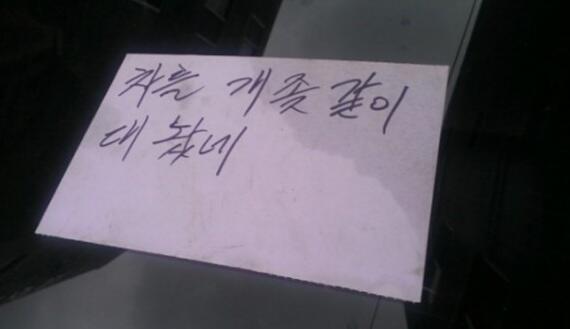 차를 개좆같이
대놨네